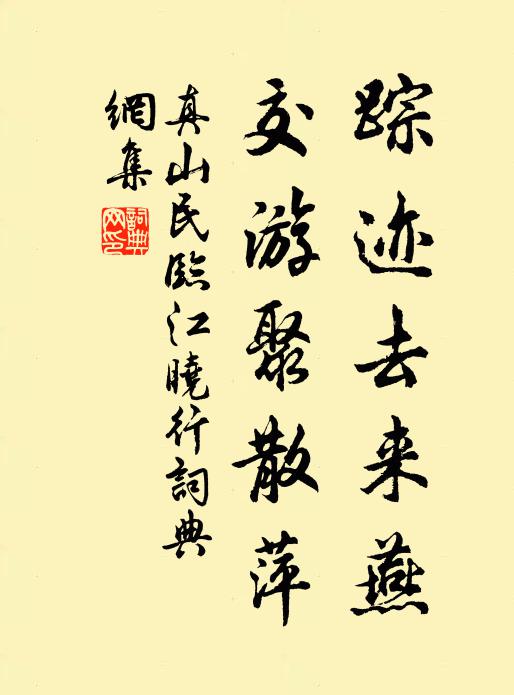 踪迹去来燕
交游聚散萍
真山民臨江曉行詞典
網集
詞典
网印